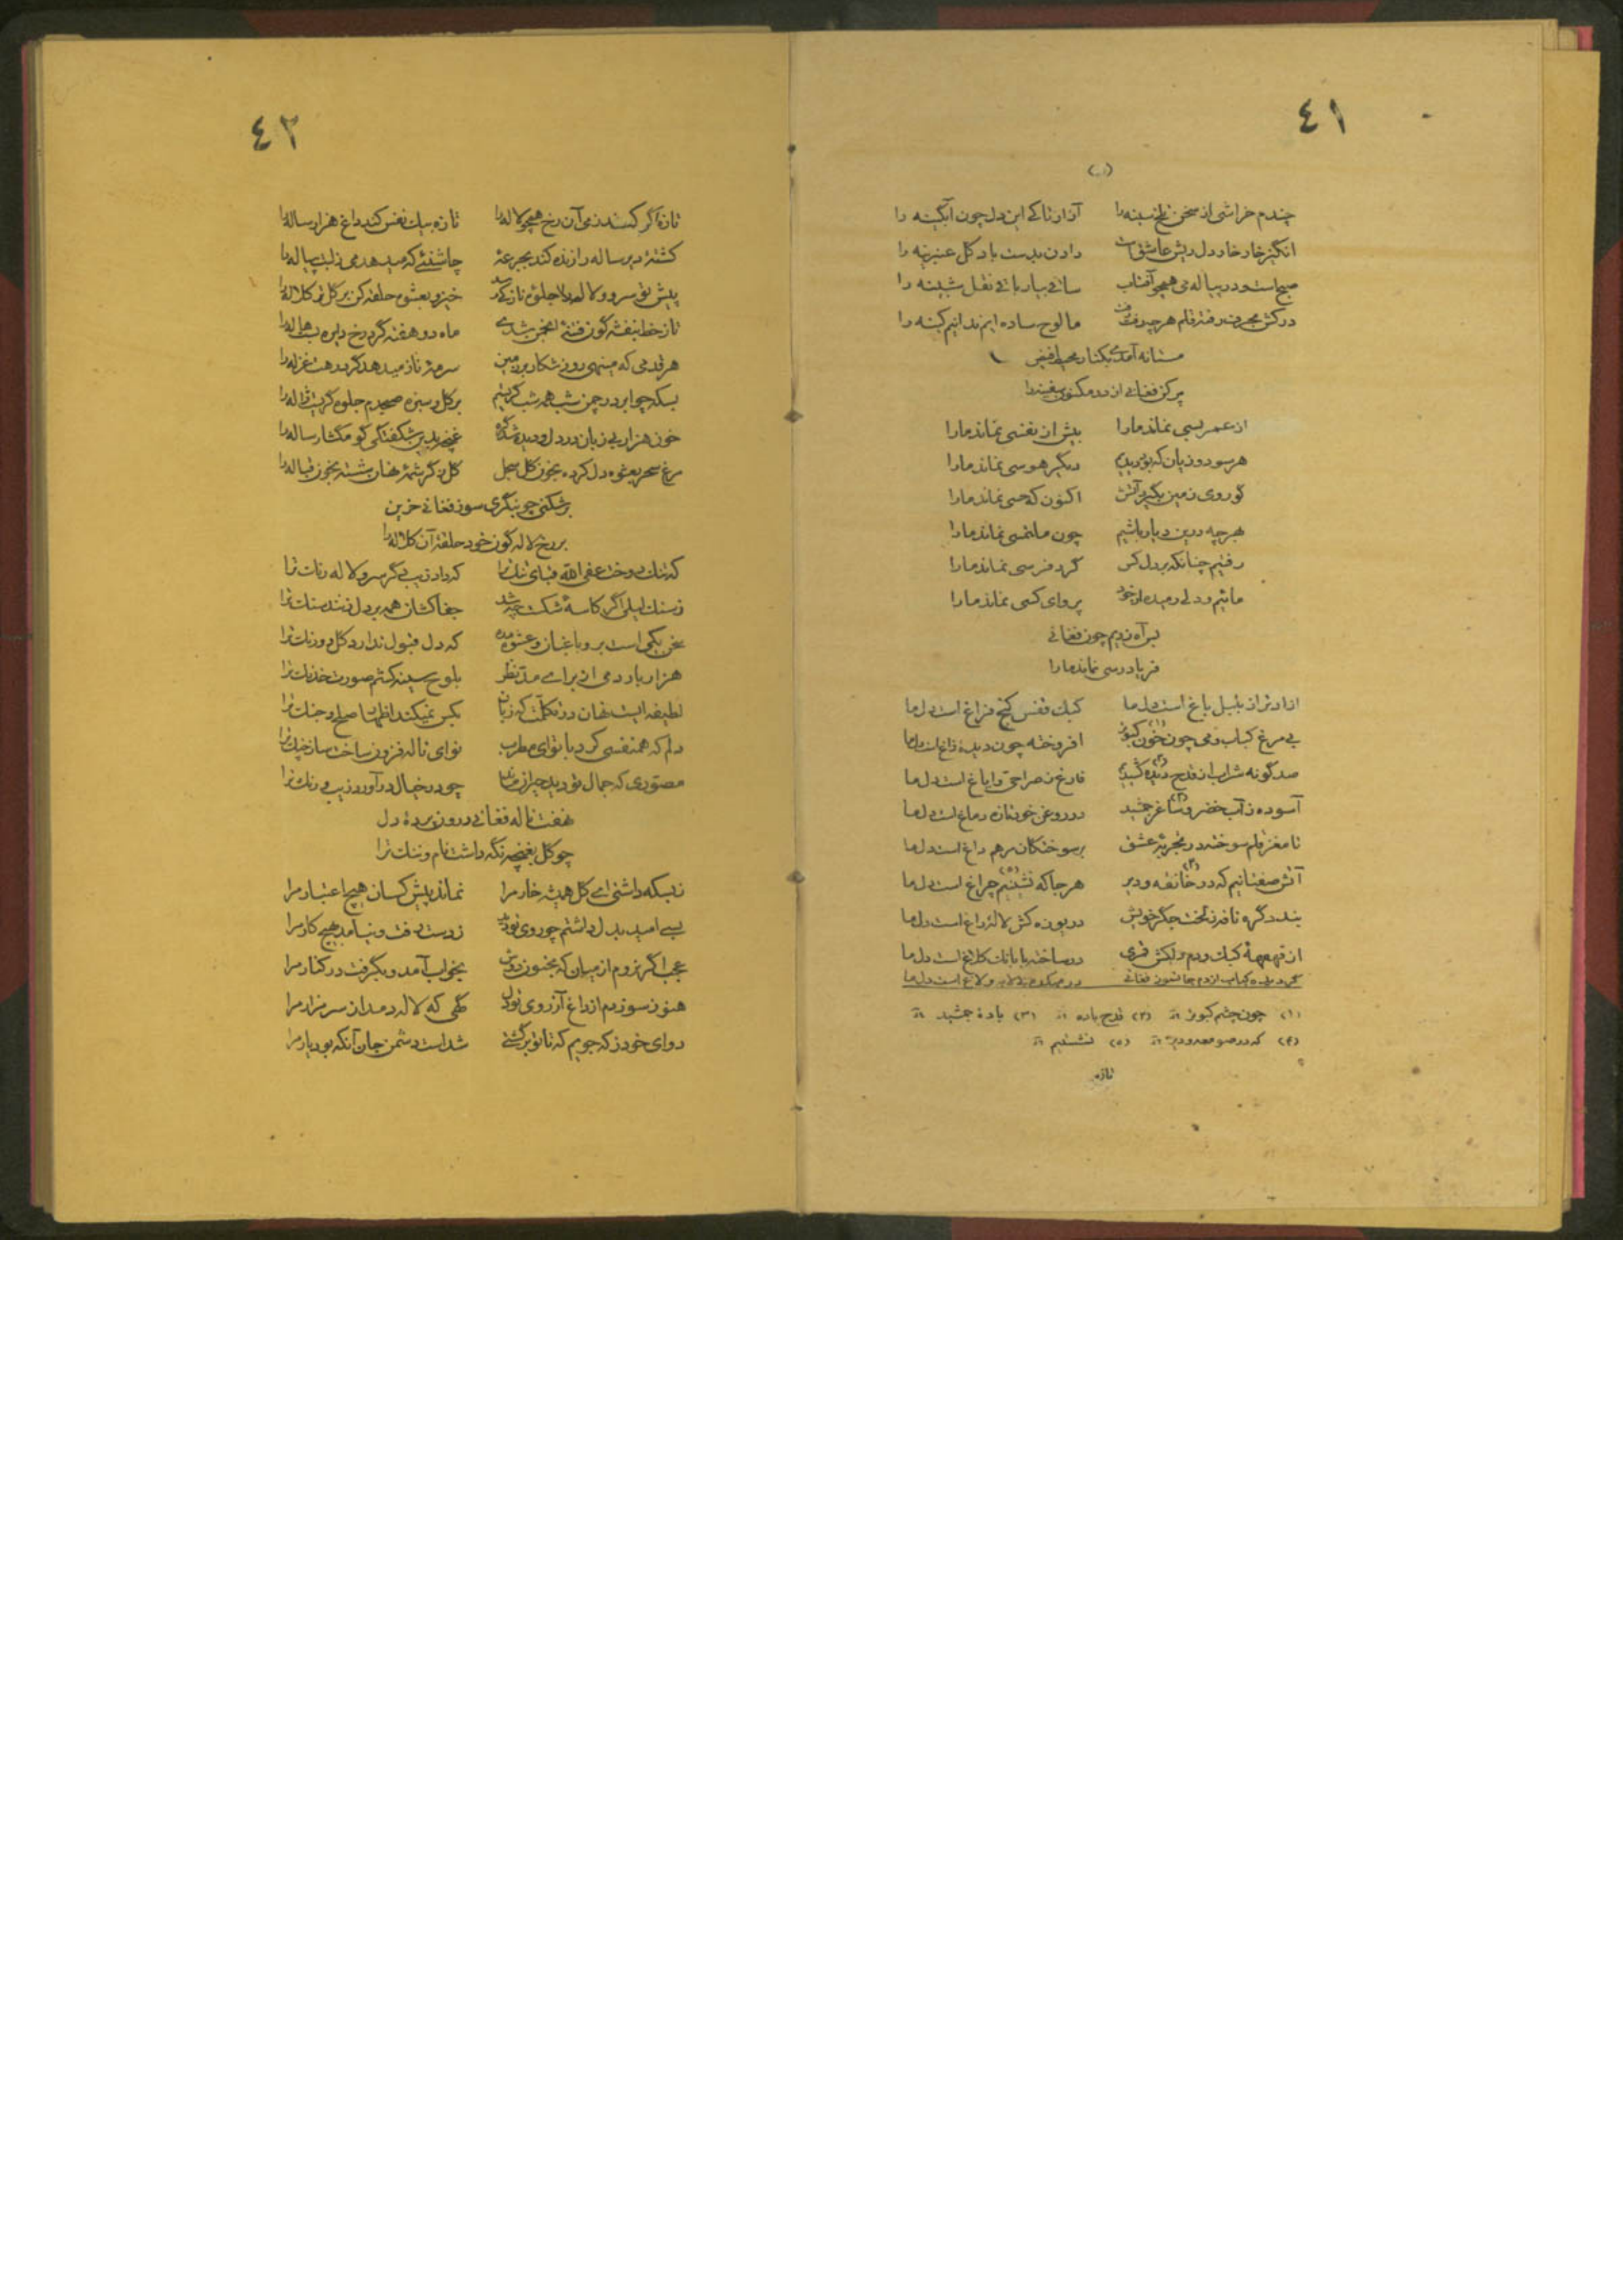 ٤١
چندم خراشی از سخن تلخ سینه را آزار تا کے این دل چون آبگینه را
انگیز خار خار دل ریش عاشق است دادن بدست باد گل عنبرینه را
صبح است و در پیاله می همچو آفتاب ساقی بیار باقی نقل شبینه را
درکش بحرف رفته قلم هرچه رفت رفت ما لوح ساده ایم ندانیم کینه را
مستانه آمدی بکنار محیط فیض
پر کن فغانی از در مکنون سفینه را
از عمر بسی نماند ما را بیش از نفسی نماند ما را
هر سود و زیان که بود دیدیم دیگر هوسی نماند ما را
گو روی زمین بگیرد آتش اکنون که خسی نماند ما را
بهرچه درین دیار باشیم چون ملتمسی نماند ما را
رفتیم چنانکه بر دل کس گرد فرسی نماند ما را
مائیم و دلی رمیده از خود پروای کسی نماند ما را
بر آه زدیم چون فغانی
فریاد رسی نماند ما را
ازادتر از بلبل باغ است دل ما کبک قفس کنج فراغ است دل ما
بی مرغ کباب و می چون خون کبوتر افروخته چون دیدهٔ زاغ است دل ما
صد گونه شراب از قدح دیده کشیدیم فارغ ز صراحی و ایاغ است دل ما
آسوده ز آب خضر و ساغر جمشید در روغن خود تازه دماغ است دل ما
تا مغز قلم سوخته در تجربهٔ عشق بر سوختگان مرهم داغ است دل ما
آتش صفتانیم که در خانقه و دیر هر جا که نشینیم چراغ است دل ما
بندد گره نافه ز لخت جگر خویش دریوزه کش لالهٔ داغ است دل ما
از قهقههٔ کبک و دم دلکش قمری در ساخته با بانک کلاغ است دل ما
گردیده کباب از دم جانسوز فغانی در میکده لابه و لاغ است دل ما
(۱) چون چشم کبوتر (۲) قدح باده (۳) بادهٔ جمشید
(۴) که در صومعه و دیر (۵) نشستیم
تازه
٤٢
تازه اگر کسند می آن رخ همچو لاله را تازه بیک نفس کند داغ هزار ساله را
کشتهٔ دیر ساله را زنده کند بجرعهٔ چاشنئے که میدهد می ز لب پیاله را
پیش تو سرو و لاله را جلوهٔ ناز کے رسد خیز و بعشوه حلقه کن بر گل تر کلاله را
تاز خط بنفشه گون فتنهٔ انجمن شدی ماه دو هفته گرد رخ دایره بست هاله را
هر قدمی که مینهی روز شکار بر زمین سرمهٔ ناز میدهد گرد رهت غزاله را
بسکه چو ابر در چمن شب همه شب گریستم بر گل و سبزه صبحدم جلوه گریست ژاله را
خون هزار بی زبان در دل و دیده شد گره غنچه بدین شگفتگی گو مگشا رساله را
مرغ سحر بعشوه دل کرده بخون گل سجل گل به کرشمهٔ نهان شسته بخون قباله را
برشکنی چو بنگری سوز فغانی حزین
بر رخ لاله گون خود حلقهٔ آن کلاله را
که تنک دوخت عفی الله قبای تنک ترا که داد زیب دگر سرو لاله رنک ترا
ز سنک لیلی اگر کاسهٔ شکست چه شد جفاکشان همه بر دل زنند سنک ترا
سخن یکی است برو باغبان و عشوه مده که دل قبول ندارد گل دو رنک ترا
هزار بار دمی از برای مد نظر بلوح سینه کشم صورت خدنک ترا
لطیفه ایست نهان در تکلمت که زبان بکس نمیکند اظهار صلح و جنک ترا
دلم که همنفسی کرد با نوای مطرب نوای ناله فزون ساخت ساز چنک ترا
مصوری که جمال تو دید حیران ماند چو در خیال در آورد زیب و رنک ترا
نهفت ناله فغانی درون پردهٔ دل
چو گل بغنچه نگه داشت نام و ننک ترا
ز بسکه داشتی ای گل همیشه خار مرا نماند پیش کسان هیچ اعتبار مرا
بسی امید بدل داشتم چو روی نمود ز دست رفت و نیامد بهیچ کار مرا
عجب اگر نروم از میان که بخون دوش بخواب آمد و بگرفت در کنار مرا
هنوز سوزدم از داغ آرزوی تو دل گهی که لاله دمد از سر مزار مرا
دوای خود ز که جویم که تا تو برگشتی شداست دشمن جان آنکه بود یار مرا